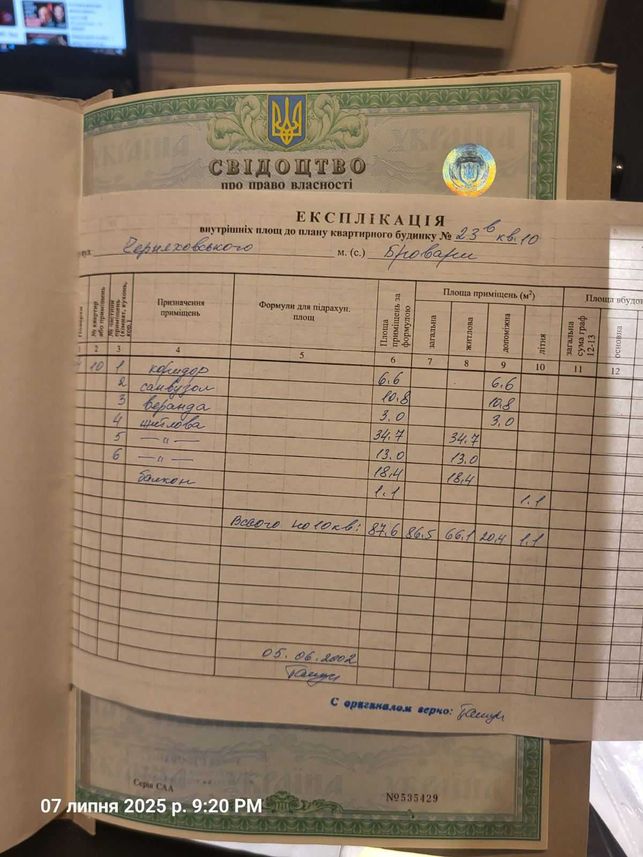 СВІДОЦТВО
про право власності
ЕКСПЛІКАЦІЯ
внутрішніх площ до плану квартирного будинку № 23 в кв. 10
вул. Черняховського м. (с.) Бровари
№ квартир або приміщень
Призначення приміщень
Формули для підрахун. площ
Площа приміщень за формулою
Площа приміщень (м²)
загальна
житлова
допоміжна
літня
загальна сума граф 12-13
основна
2 3 4 5 6 7 8 9 10 11 12
10 1 коридор 6.6 6.6
2 санвузол 10.8 10.8
3 веранда 3.0 3.0
4 житлова 34.7 34.7
5 —"— 13.0 13.0
6 —"— 18.4 18.4
балкон 1.1 1.1
Всього по 10 кв: 87.6 86.5 66.1 20.4 1.1
05.06.2002
С оригиналом верно:
Серія САА
№535429
07 липня 2025 р. 9:20 PM